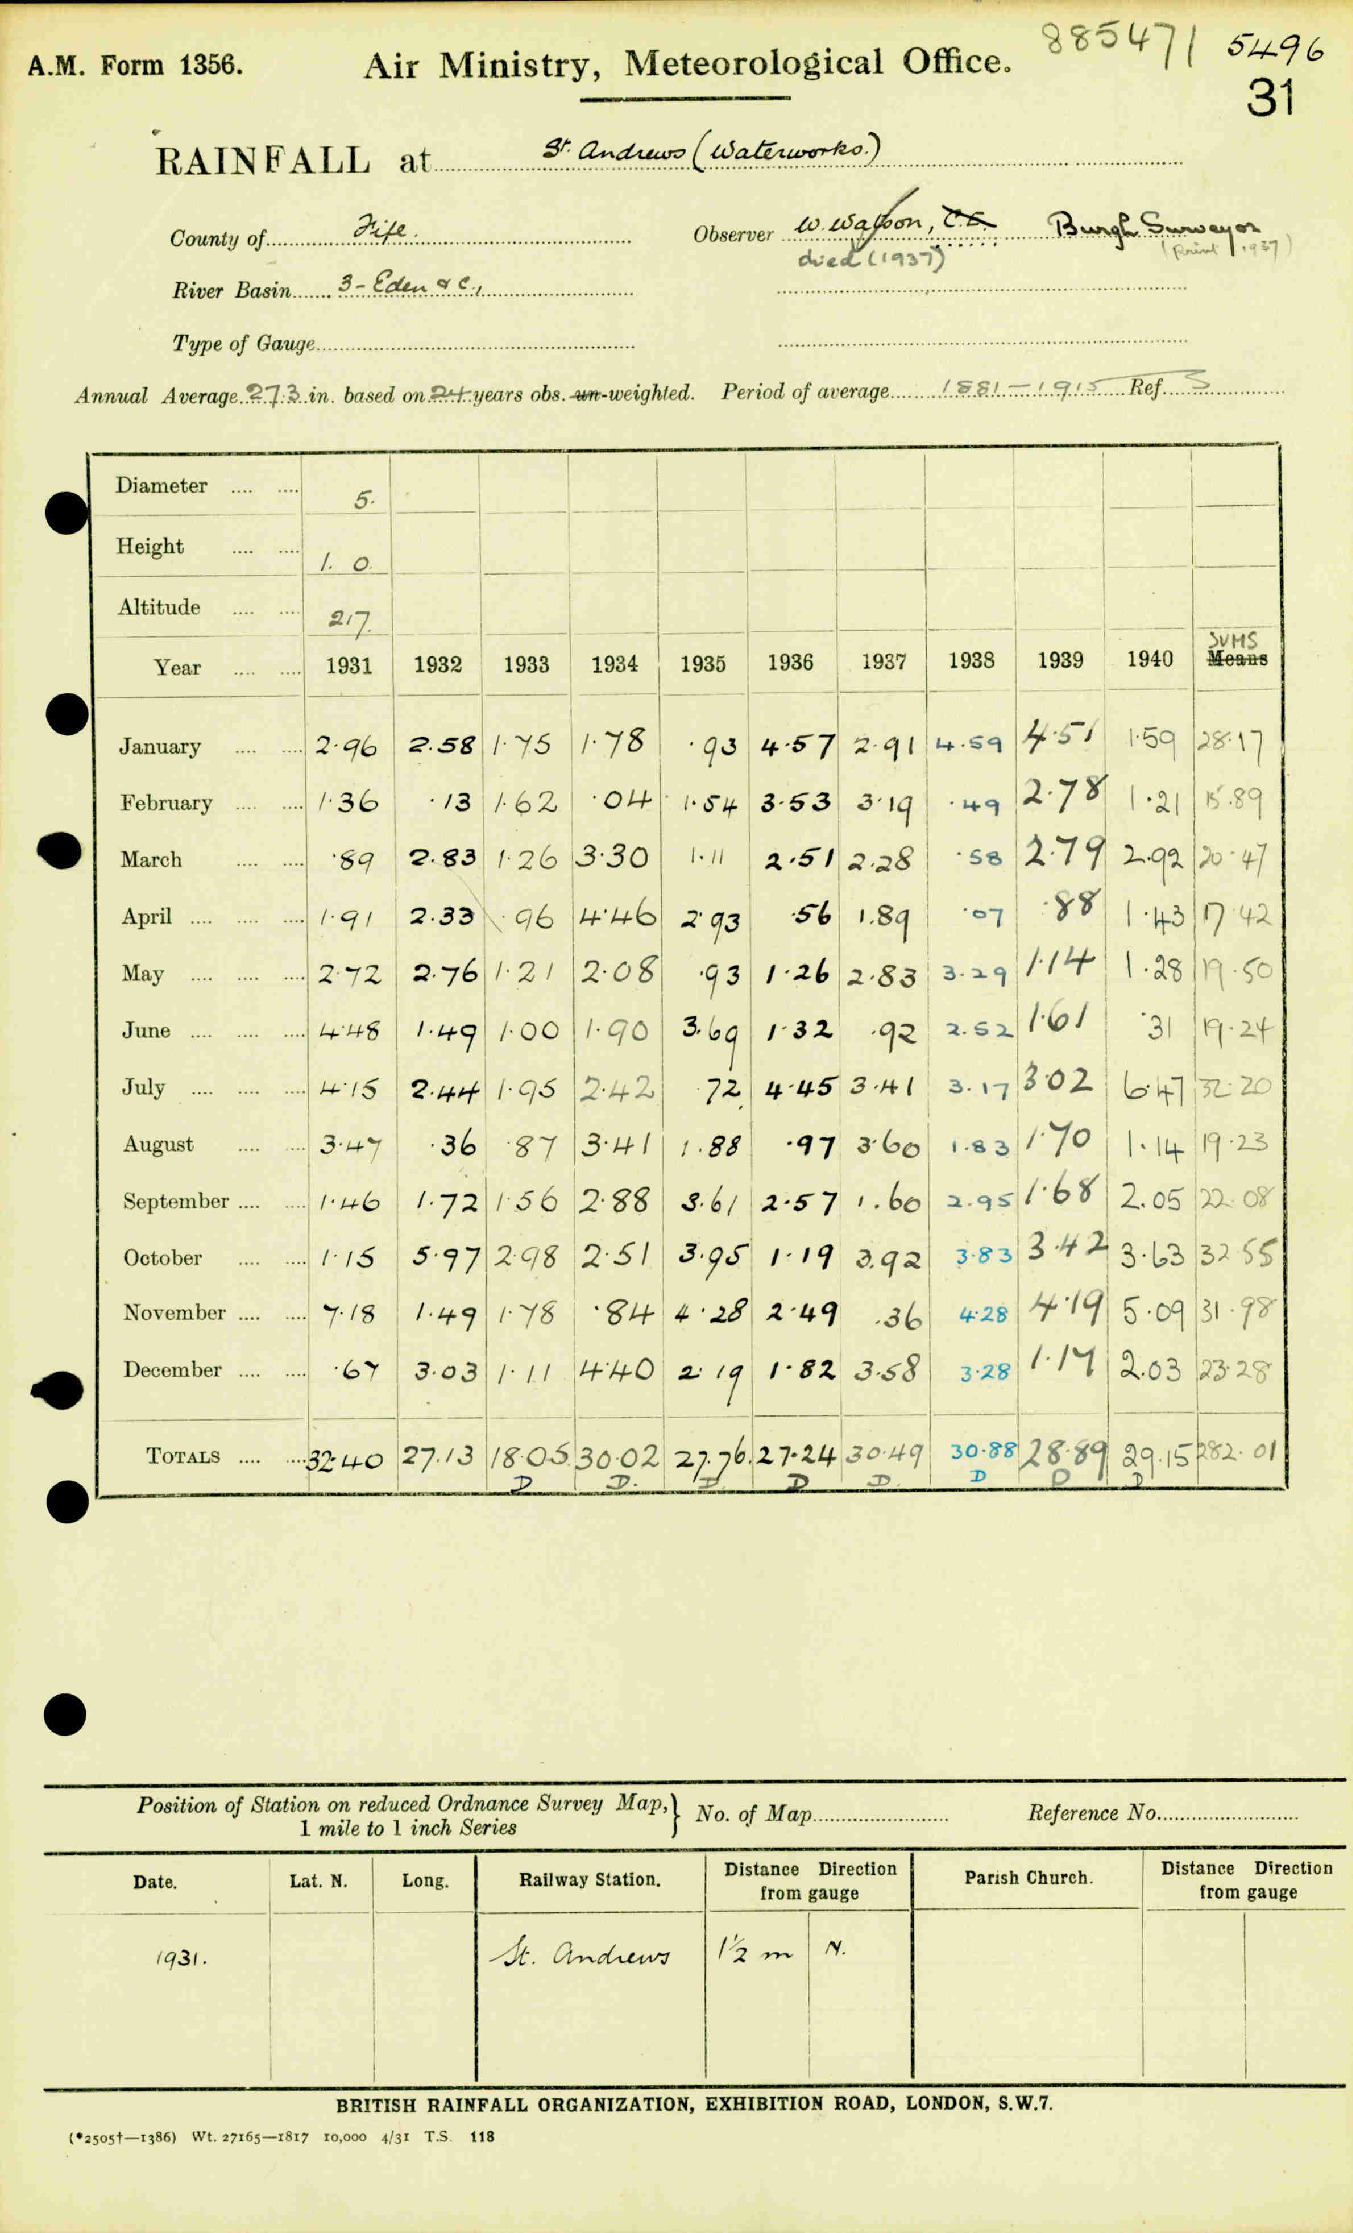 885471 5496
A.M. Form 1356. Air Ministry, Meteorological Office.
31
RAINFALL at St. Andrews (Waterworks.)
County of Fife. Observer W. Watson, C.E. Burgh Surveyor
died (1937) 1937)
River Basin 3 - Eden &c.,
Type of Gauge
Annual Average 27.3 in. based on 24 years obs. un-weighted. Period of average 1881-1915 Ref. S
Diameter 5.
Height 1. 0
Altitude 217.
SUMS
Year 1931 1932 1933 1934 1935 1936 1937 1938 1939 1940 Means
January 2.96 2.58 1.75 1.78 .93 4.57 2.91 4.59 4.51 1.59 28.17
February 1.36 .13 1.62 .04 1.54 3.53 3.19 .49 2.78 1.21 15.89
March .89 2.83 1.26 3.30 1.11 2.51 2.28 .58 2.79 2.92 20.47
April 1.91 2.33 .96 4.46 2.93 .56 1.89 .07 .88 1.43 17.42
May 2.72 2.76 1.21 2.08 .93 1.26 2.83 3.29 1.14 1.28 19.50
June 4.48 1.49 1.00 1.90 3.69 1.32 .92 2.52 1.61 .31 19.24
July 4.15 2.44 1.95 2.42 .72 4.45 3.41 3.17 3.02 6.47 32.20
August 3.47 .36 .87 3.41 1.88 .97 3.60 1.83 1.70 1.14 19.23
September 1.46 1.72 1.56 2.88 3.61 2.57 1.60 2.95 1.68 2.05 22.08
October 1.15 5.97 2.98 2.51 3.95 1.19 3.92 3.83 3.42 3.63 32.55
November 7.18 1.49 1.78 .84 4.28 2.49 .36 4.28 4.19 5.09 31.98
December .67 3.03 1.11 4.40 2.19 1.82 3.58 3.28 1.17 2.03 23.28
TOTALS 32.40 27.13 18.05 30.02 27.76 27.24 30.49 30.88 28.89 29.15 282.01
D D. D. D D. D D D
Position of Station on reduced Ordnance Survey Map,} No. of Map Reference No.
1 mile to 1 inch Series
Date. Lat. N. Long. Railway Station. Distance Direction from gauge Parish Church. Distance Direction from gauge
1931. St. Andrews 1½ m N.
BRITISH RAINFALL ORGANIZATION, EXHIBITION ROAD, LONDON, S.W.7.
(*2505†—1386) Wt. 27165—1817 10,000 4/31 T.S. 118